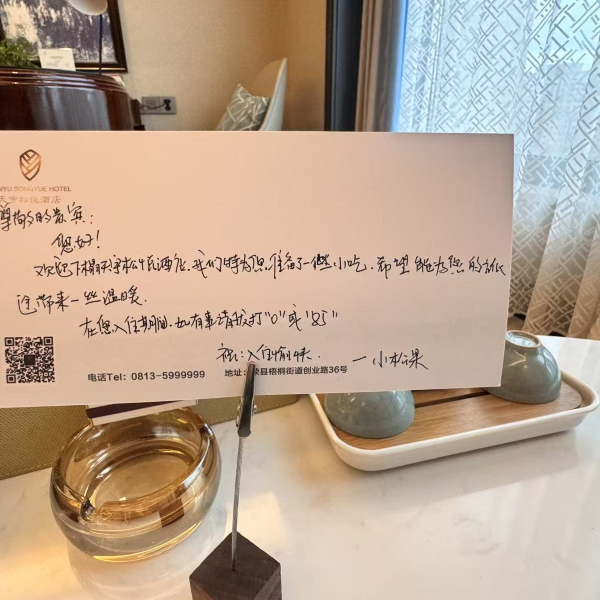 NYU SONGYUE HOTEL
天宇松悦酒店
尊敬的贵宾:
您好!
欢迎下榻天宇松悦酒店,我们特为您准备了一些小吃,希望能为您的旅
途带来一丝温暖.
在您入住期间,如有事请拨打"0"或"85"
祝:入住愉快. —小松果
电话Tel: 0813-5999999 地址: 荣县梧桐街道创业路36号